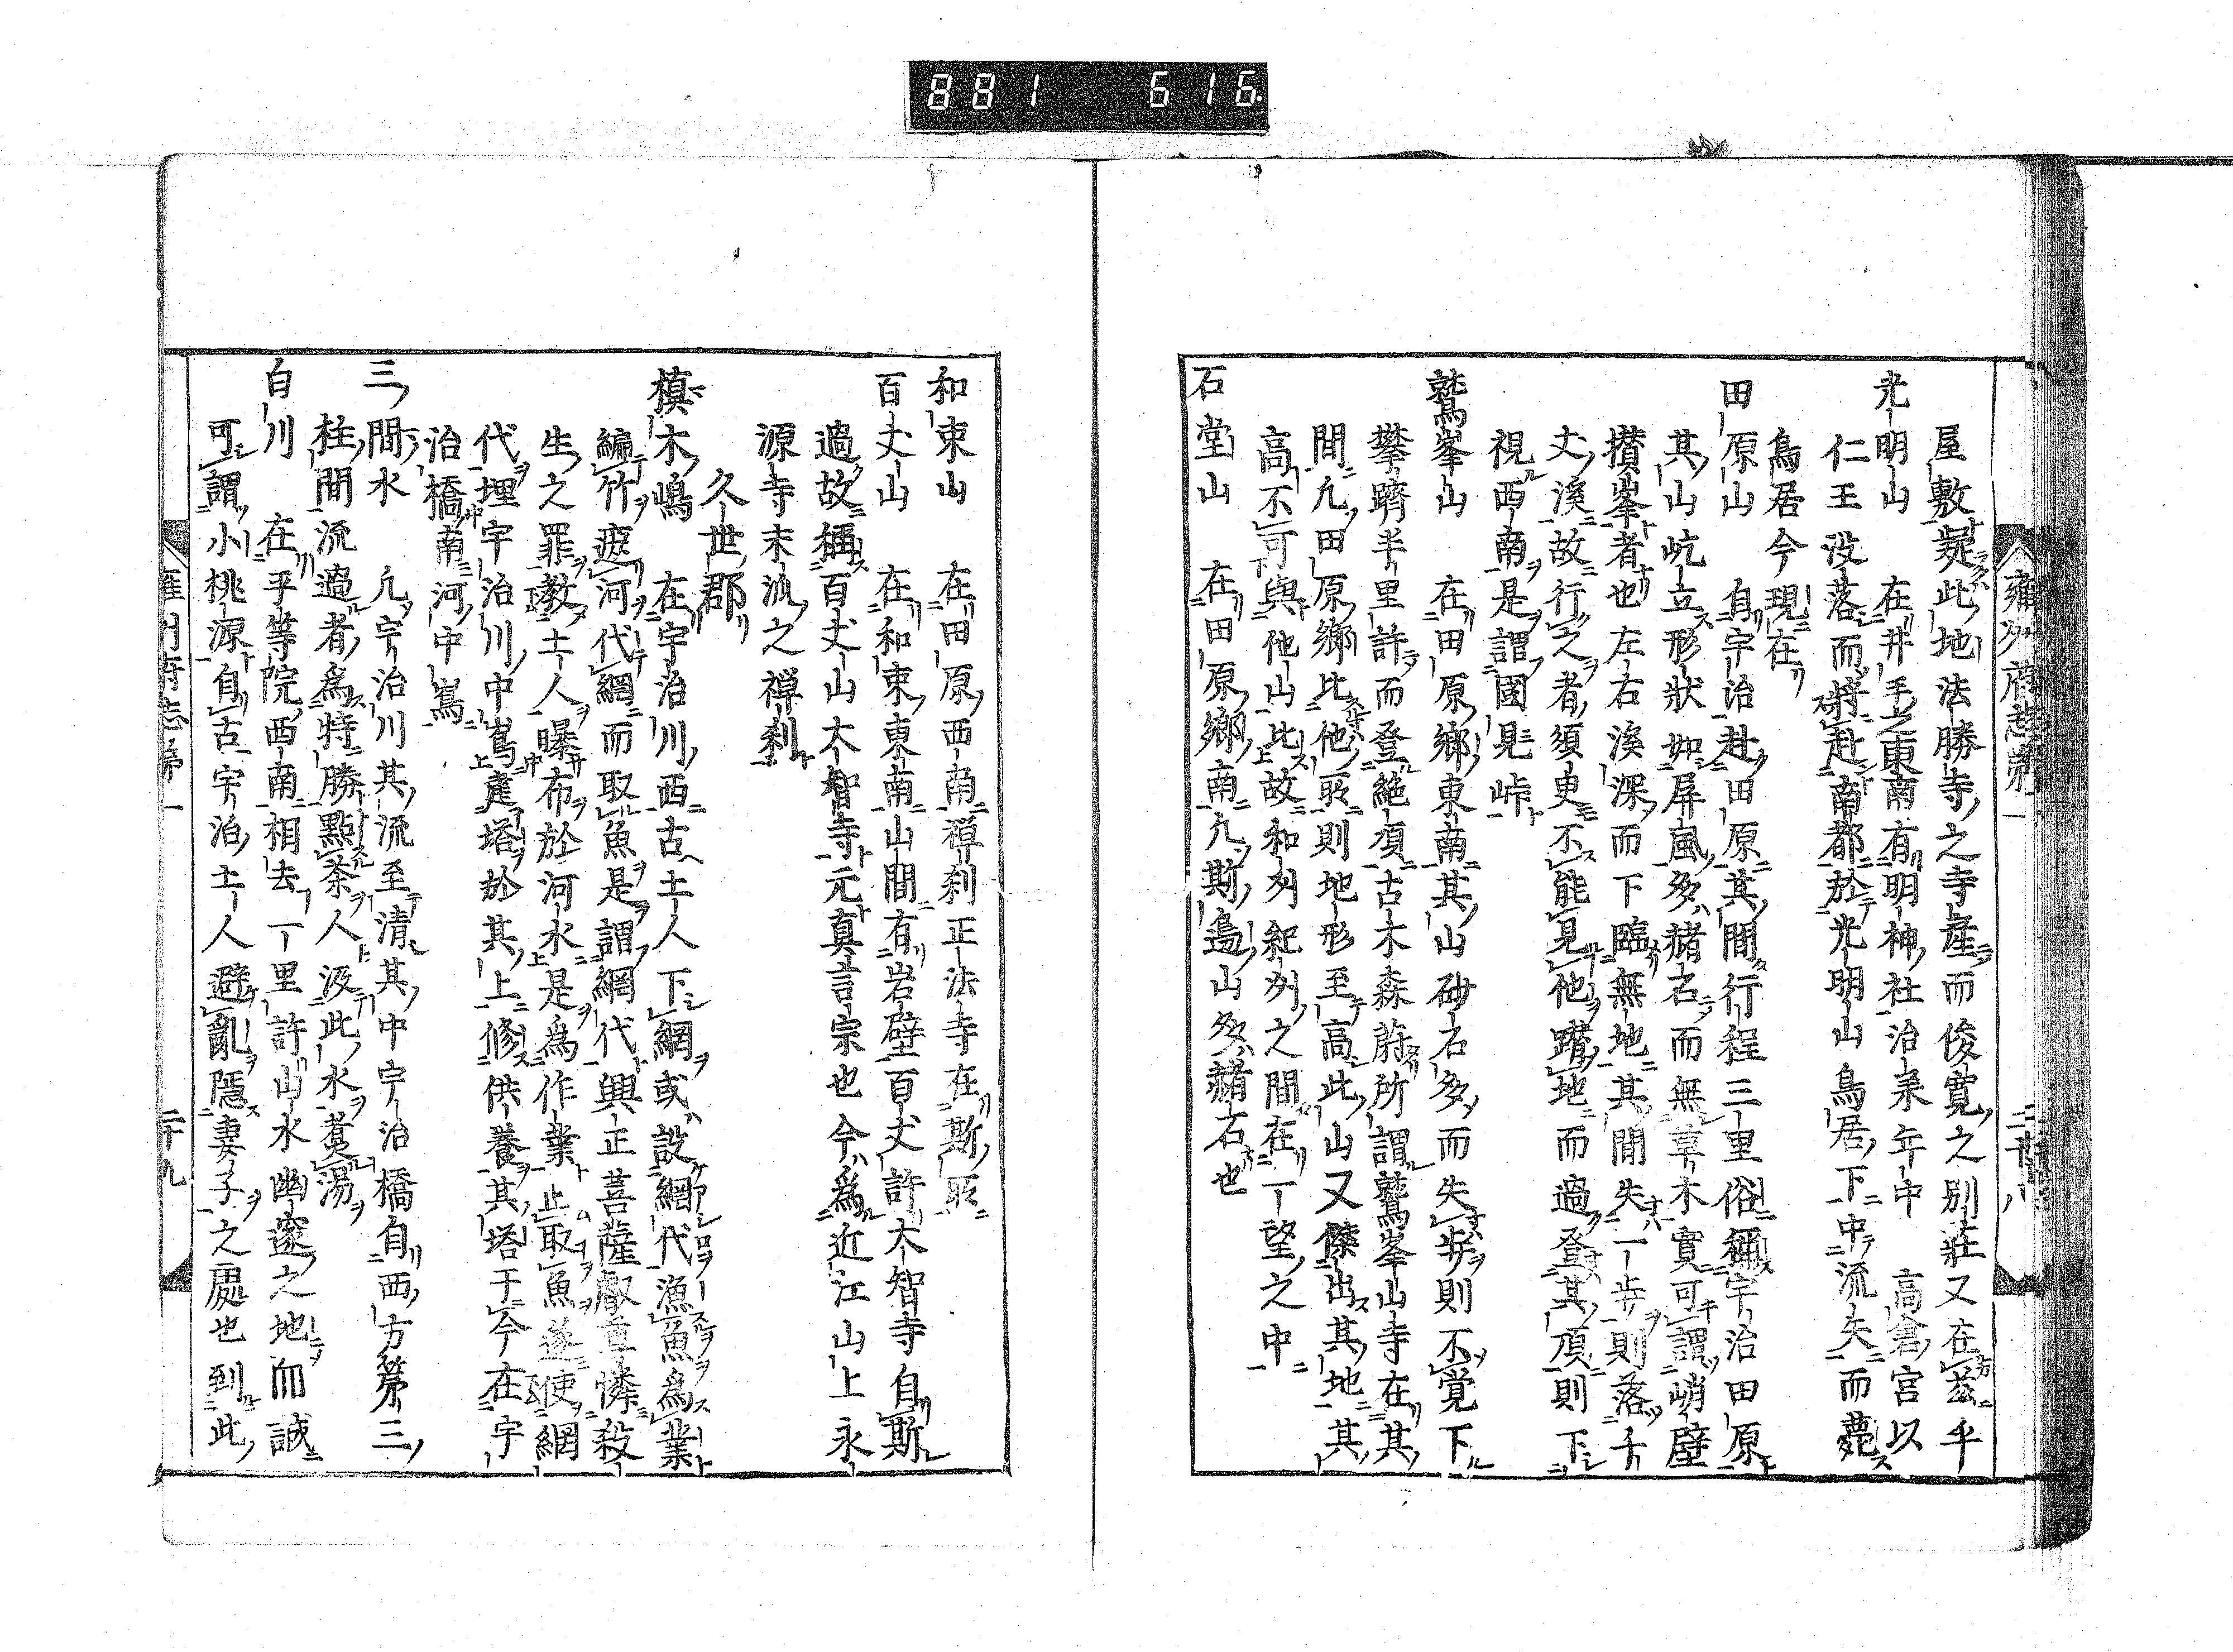 881 616
雍州府志第一 二十八
屋敷疑此地法勝寺之寺産而俊寛之別荘又在茲乎
光明山 在井手之東南有明神社治承年中 高倉宮以
仁王没落而将赴南都於光明山鳥居下中流矢而薨
鳥居今現在
田原山 自宇治赴田原其間行程三里俗稱宇治田原
其山屹立形狀如屏風多赭石而無草木實可謂峭壁
攅峯者也左右渓深而下臨無地其間失一歩則落千
丈溪故行之者須更不能見他躋地而過登其頂則下
視西南是謂國見峠
鷲峯山 在田原郷東南其山砂石多而失歩則不覚下
攀躋半里許而登絶頂古木森蔚所謂鷲峯山寺在其
間凢田原郷比他所則地形至高此山又傑出其地其
高不可與他山比故和州紀州之間在一望之中
石堂山 在田原郷南凢斯邉山多赭石也
和束山 在田原西南禅刹正法寺在斯所
百丈山 在和束東南山間有岩壁百丈許大智寺自斯
過故稱百丈山大智寺元真言宗也今為近江山上永
源寺末派之禅刹
久世郡
槙木嶋 在宇治川西古土人下網或設網代漁魚為業
編竹遮河代網而取魚是謂網代興正菩薩叡尊憐殺
生之罪教土人曝布於河水是為作業止取魚遂使網
代埋宇治川中嶌建塔於其上修供養其塔于今在宇
治橋南河中嶌
三間水 凢宇治川其流至清其中宇治橋自西方第三
柱間流過者為特勝點茶人汲此水煮湯
白川 在平等院西南相去一里許山水幽邃之地而誠
可謂小桃源自古宇治土人避亂隠妻子之處也到此
雍州府志第一 二十九